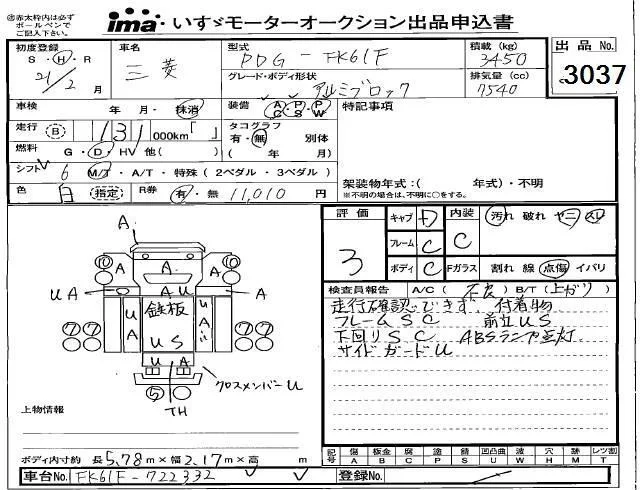 ㊟赤太枠内は必ず
ボールペンで
ご記入下さい。
ima いすゞモーターオークション出品申込書
初度登録 車名 型式 積載 (kg) 出品 No.
S・H・R 三菱 PDG-FK61F 3450
21/2 月 グレード・ボディ形状 排気量 (cc) 3037
アルミブロック 7540
車検 年・月・抹消 装備 AC PS PW 特記事項
走行 B 131 000km「 」 タコグラフ
有・無 別体
燃料 G・D・HV 他( ) ( 年 月)
シフト 6 M/T・A/T・特殊 (2ペダル・3ペダル) 架装物年式:( 年式)・不明
※不明の場合は、不明に○をする。
色 白 指定 R券 有・無 11,010 円
評価 3
キャブ D 内装 C 汚れ 破れ ヤニ
フレーム C
ボディ C Fガラス 割れ 線 点傷 イバリ
検査員報告 A/C( 不良 )B/T(上がり)
走行確認できず 付着物
フレームSC 前立US
下回りSC ABSランプ点灯
サイドガードU
A
⑩ A A A ⑩
UA A U A
⑦⑦ UA 鉄板 US UA ⑦⑦
U A
⑤ TH クロスメンバーU
上物情報
ボディ内寸約 長5.78m×幅2.17m×高 m
記号 傷 A 板金 B 腐 C 塗 P 錆 S 凹凸曲 U 波 W 穴 H 跡 M レツ割 T
車台No. FK61F-722332 登録No.